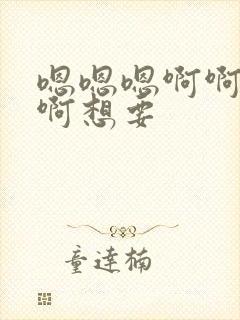 嗯嗯嗯啊啊
啊想要
童达楠